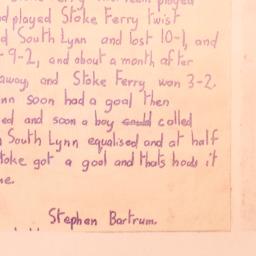 played
nd played Stoke Ferry twist
d South Lynn and lost 10-1, and
-9-2, and about a month after
away, and Stoke Ferry won 3-2.
nn soon had a goal then
ed and soon a boy could called
South Lynn equalised and at half
toke got a goal and thats hods it
me.
Stephen Bartrum.